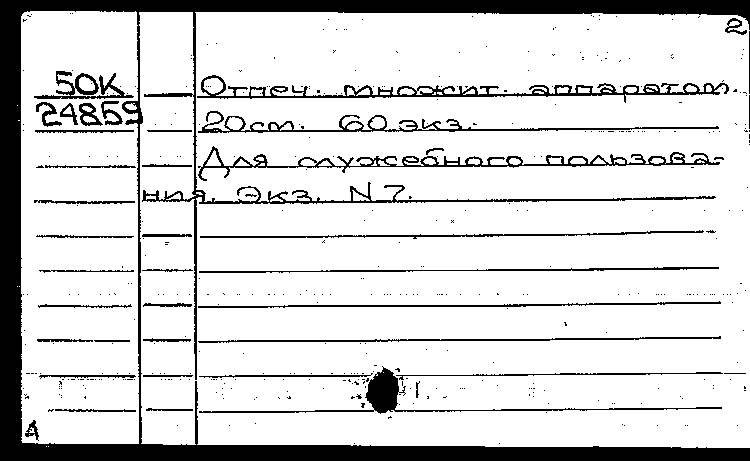 2
50К Отпеч. множит. аппаратом.
24859 20см. 60 экз.
Для служебного пользова-
ния. Экз. N 7.
А